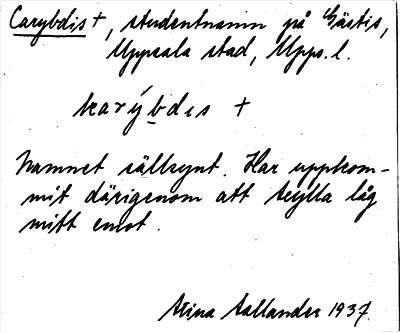 Carybdis +, studentnamn på Gästis,
Uppsala stad, Upps. l.
karýbdıs +
Namnet sällsynt. Har uppkom-
mit därigenom att Scylla låg
mitt emot.
Stina Sallander 1937.